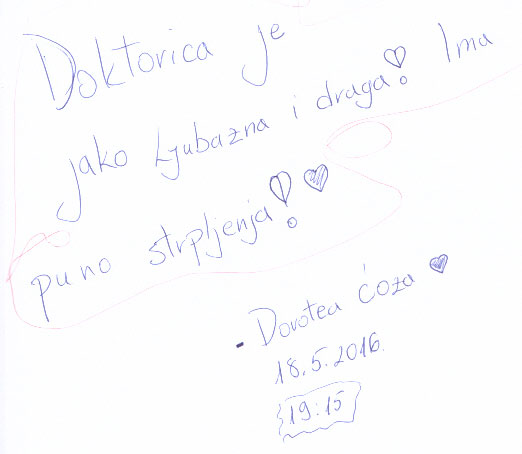 Doktorica je
jako ljubazna i draga! Ima
puno strpljenja! ♥
- Dorotea Ćoza ♥
18.5.2016.
19:15